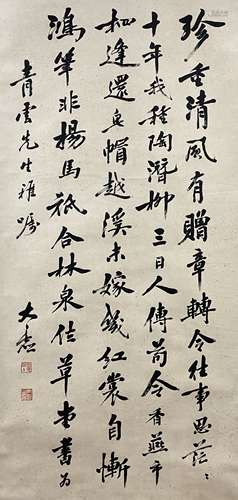 珍重清風有贈章轉令往事思茫〻
十年我種陶潛柳三日人傳荀令香燕市
相逢還與帽越溪未嫁織紅裳自慚
鴻筆非揚馬祇合林泉住草堂書為
青雲先生雅囑
大